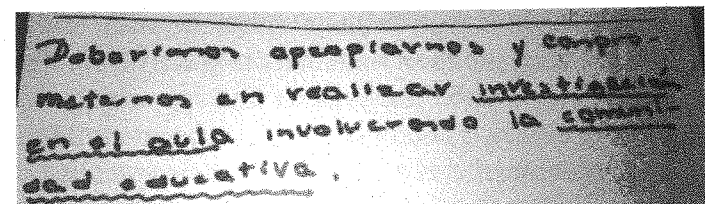 Deberíamos apropiarnos y compro-
meternos en realizar investigación
en el aula involucrando la comuni-
dad educativa.